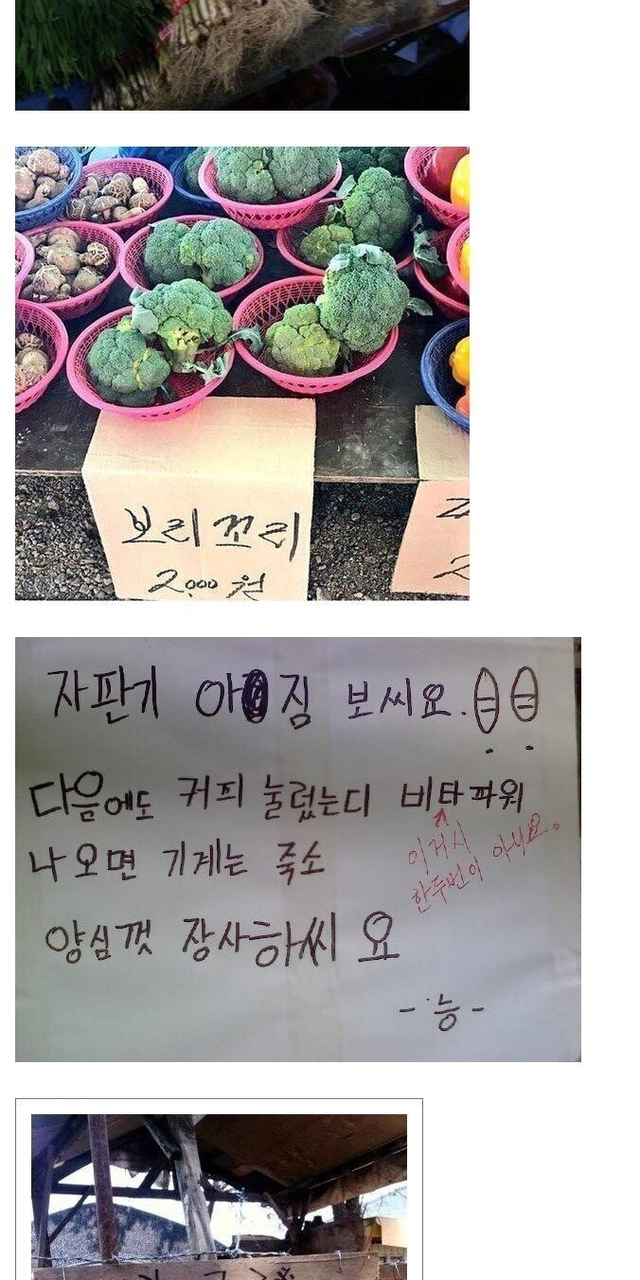 보리꼬리
2,000원
자판기 아짐 보씨요.
다음에도 커피 눌렀는디 비타파워
이거시
한두번이 아니요.
나오면 기계는 죽소
양심껏 장사하씨요
-능-